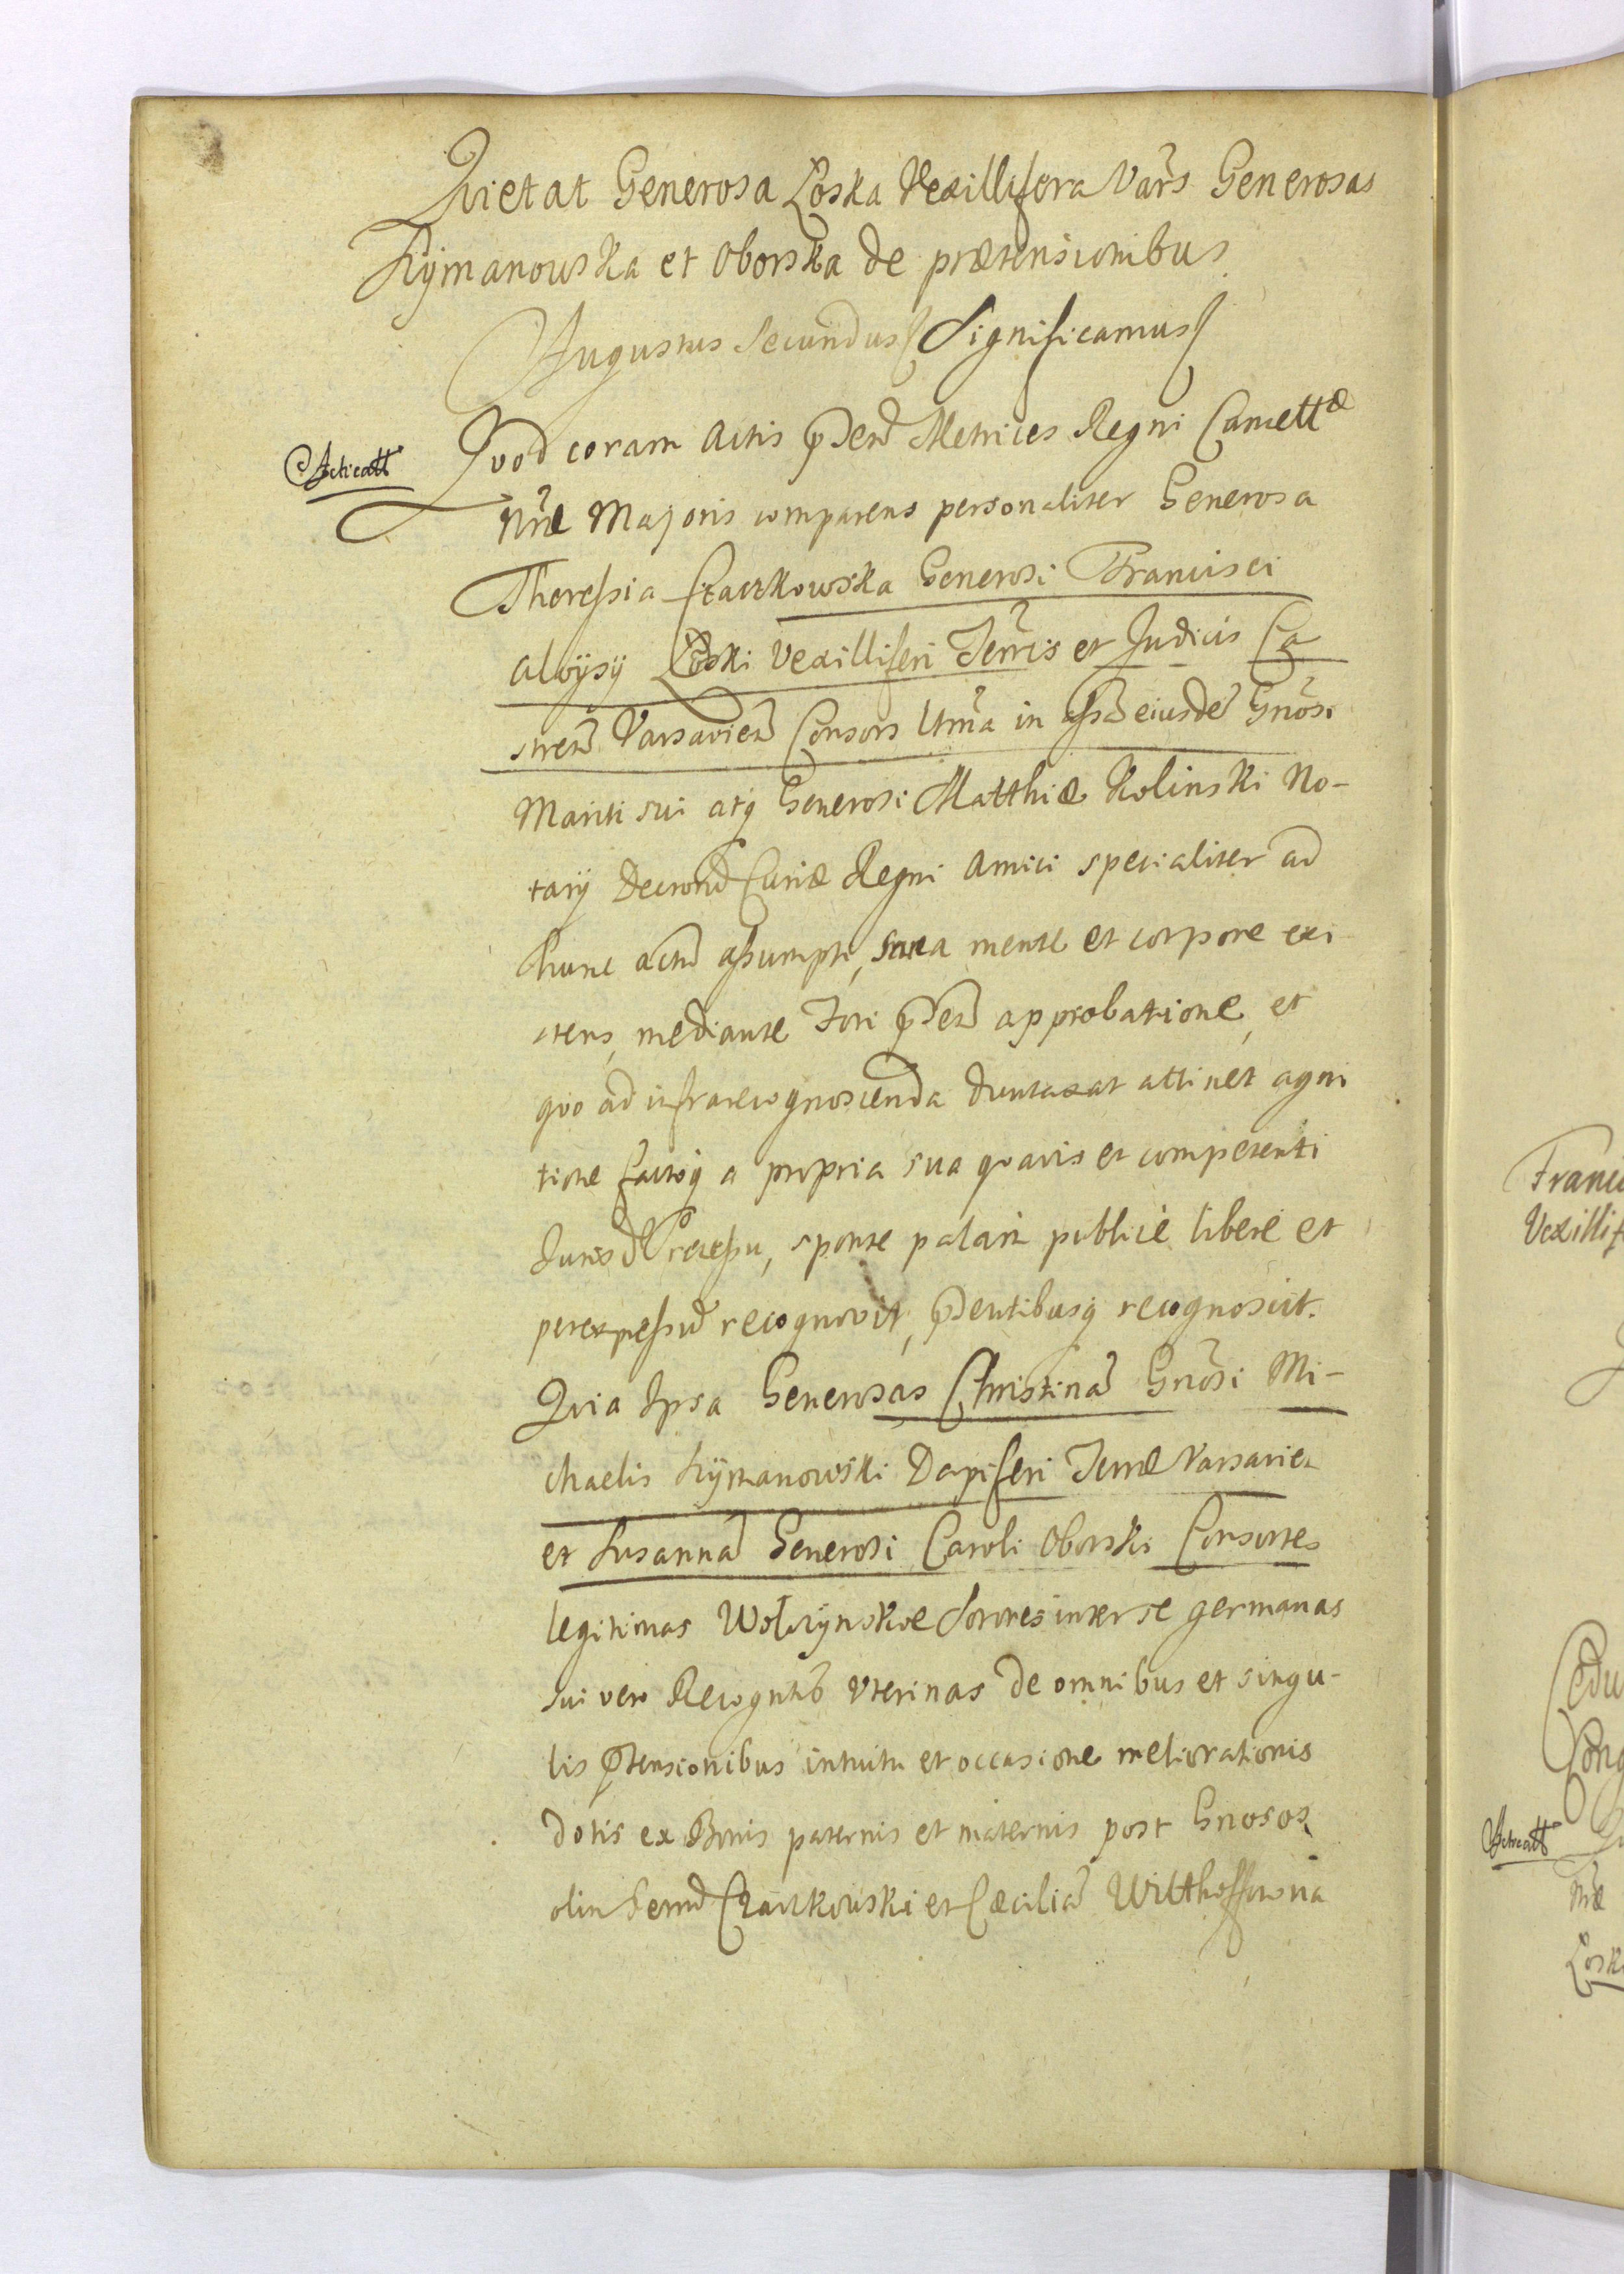 Qvietat Generosa Łoska Vexillifera Vars Generosas
Rÿmanowska et Oborska de prætensionibus
Augustus Secundus Significamus
Acticatt
Qvod coram Actis pnten Metrices Regni Cancellæ
Nræ Majoris comparens personaliter Generosa
Theressia Czaczkowska Generosi Francisci
Aloÿsÿ Łoski Vexilliferi Terris et Judicis Ca
stren Varsavien Consors Ltma in assa eiusde Gnosi
Mariti sui atq Generosi Matthiæ Kolinski No-
tarÿ Decretor Curiæ Regni Amici specialiter ad
hunc actu assumpti, sana mente et corpore exi
stens, mediante Fori pnten approbatione, et
qvo ad infrarecognoscenda duntaxat attinet agni
tione factoq a propria sua qvavis et competenti
Jurisd recessu, sponte palam publice libere et
perexpressu recognovit, pntentibusq recognoscit.
Qvia Ipsa Generosas Christina Gnosi Mi-
chaelis Rÿmanowski Dapiferi Terræ Varsavien
et Susanna Generosi Caroli Oborski Consortes
legitimas Wolczÿnskie Sorores inter se germanas
sui vero Recogntis Vterinas de omnibus et singu-
lis prtensionibus intuitu et occasione meliorationis
Dotis ex Bonis paternis et maternis post Gnosos
olim Czaczkowski et Cæcilia Witthoffowna
Franci
Vexillif
Cedu
Cong
Acticatt
Nræ
Łosk